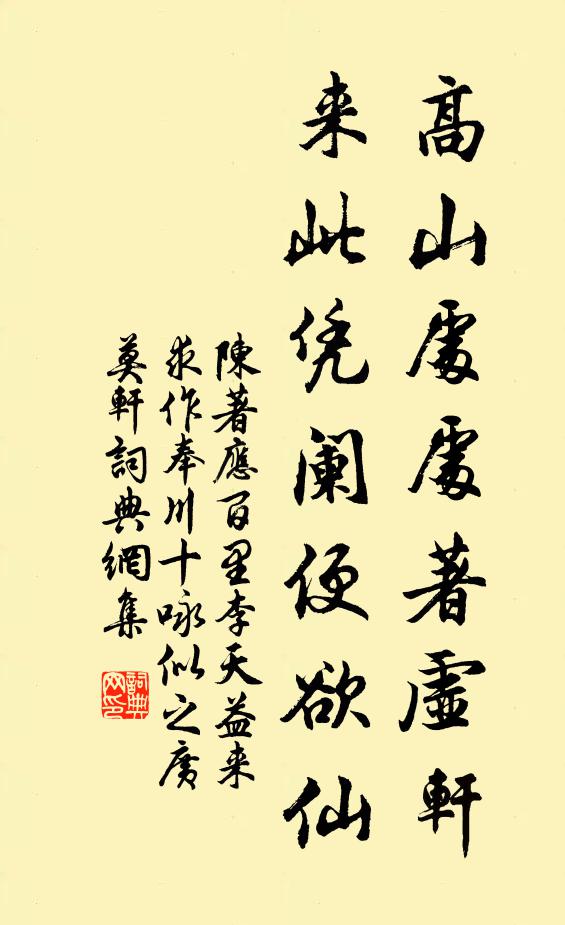 高山處處著虛軒
来此凭阑便欲仙
陳著應百里李天益来
求作奉川十咏似之廣
莫軒詞典網集
詞典
网印